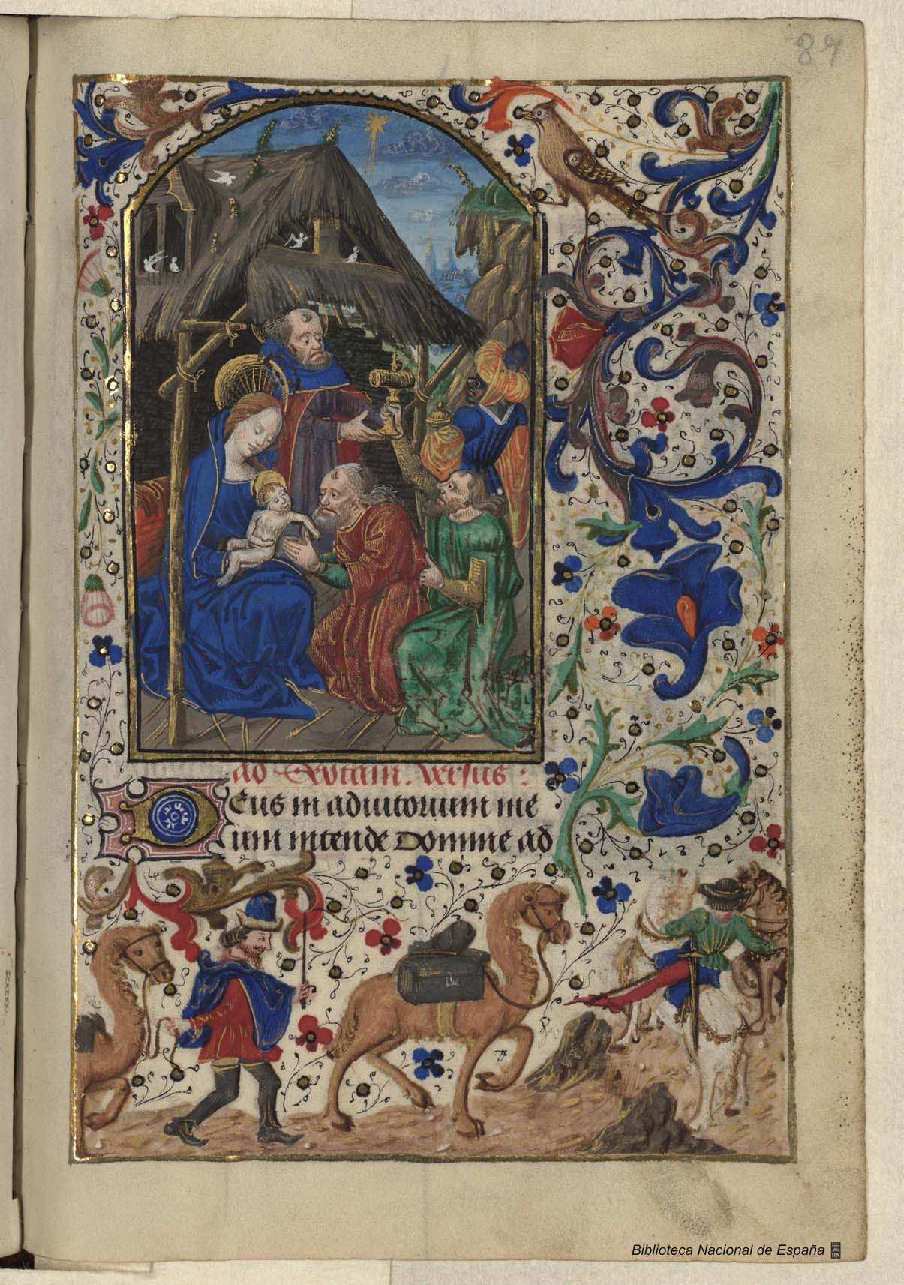 87
ad Sextam. versus:
Deus in adiutorium me
um intende Domine ad
Biblioteca Nacional de España